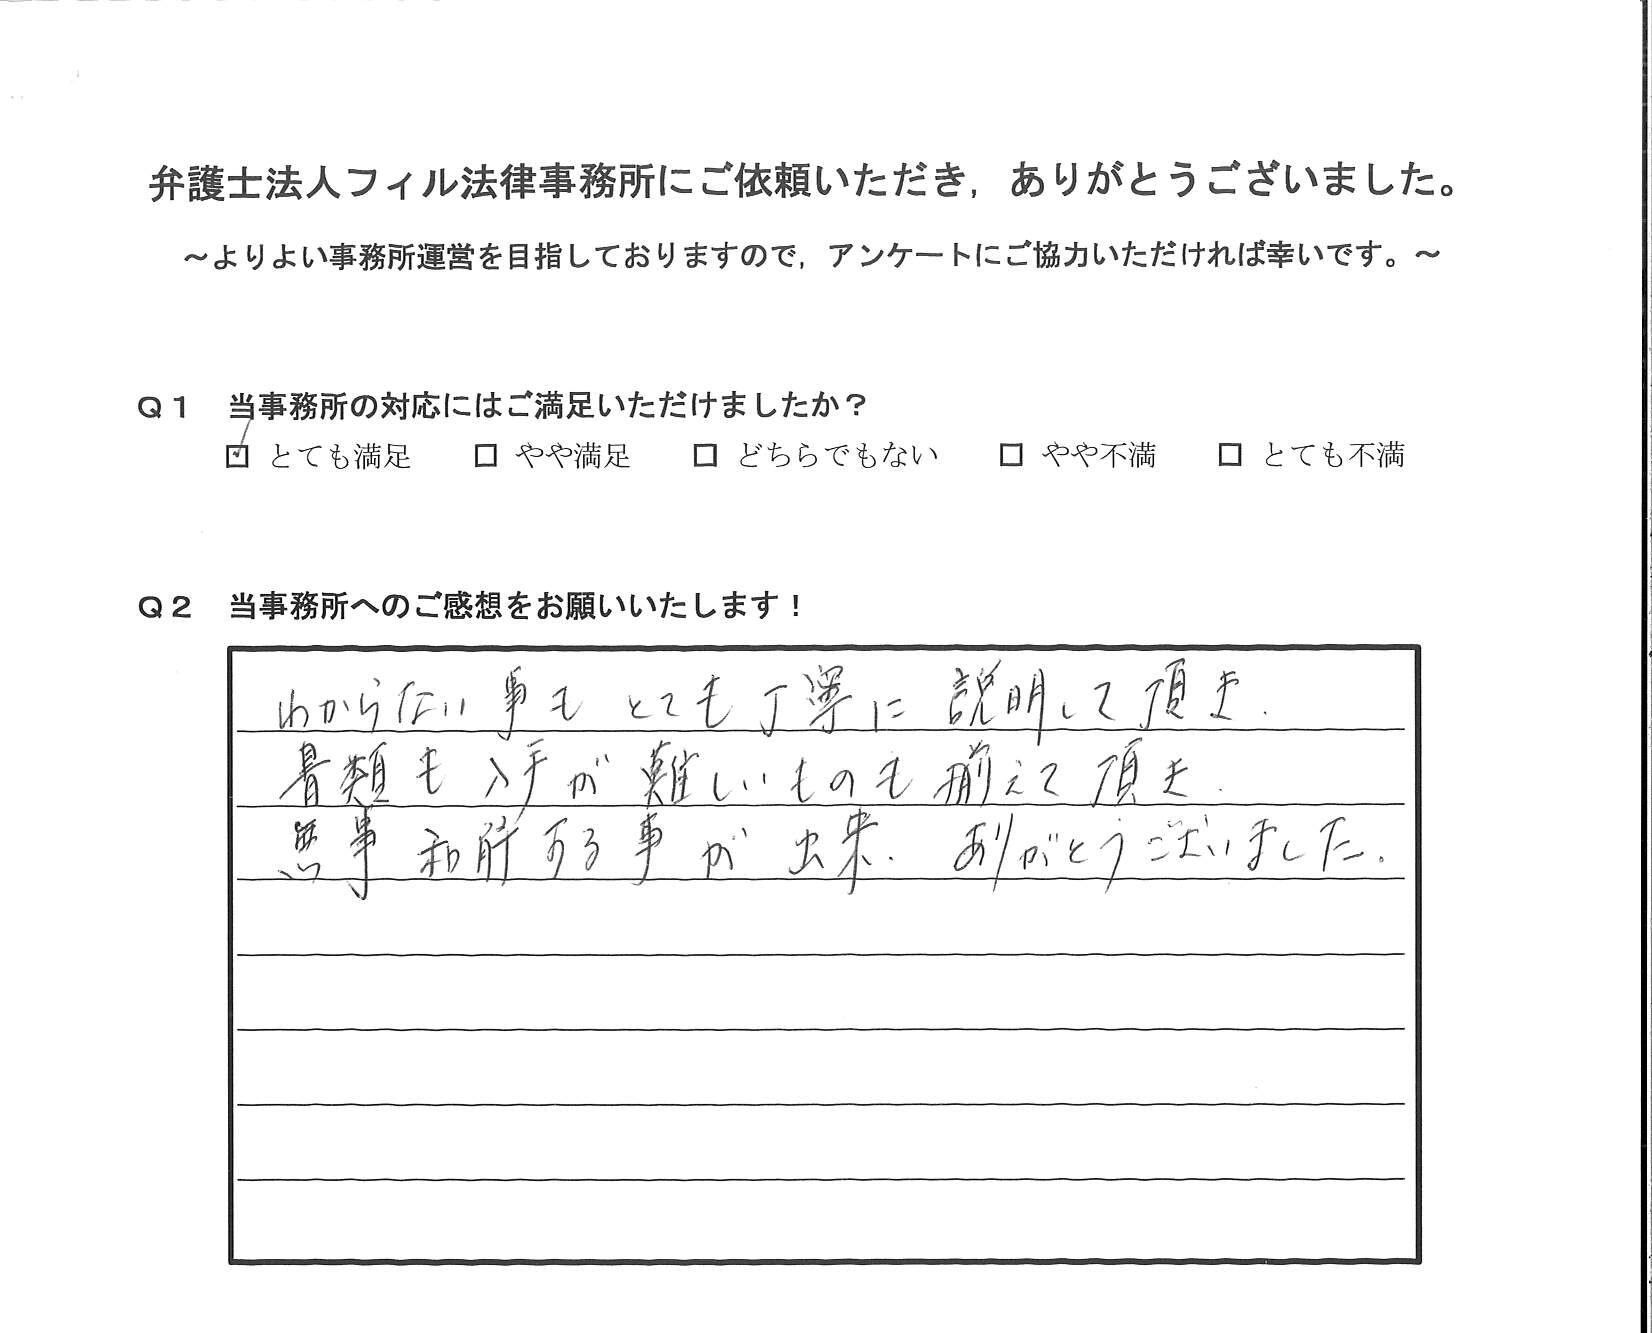 弁護士法人フィル法律事務所にご依頼いただき，ありがとうございました。
～よりよい事務所運営を目指しておりますので，アンケートにご協力いただければ幸いです。～
Ｑ１　当事務所の対応にはご満足いただけましたか？
☑ とても満足　□ やや満足　□ どちらでもない　□ やや不満　□ とても不満
Ｑ２　当事務所へのご感想をお願いいたします！
わからない事もとても丁寧に説明して頂き．
書類も入手が難しいものも揃えて頂き．
無事和解する事が出来．ありがとうございました．